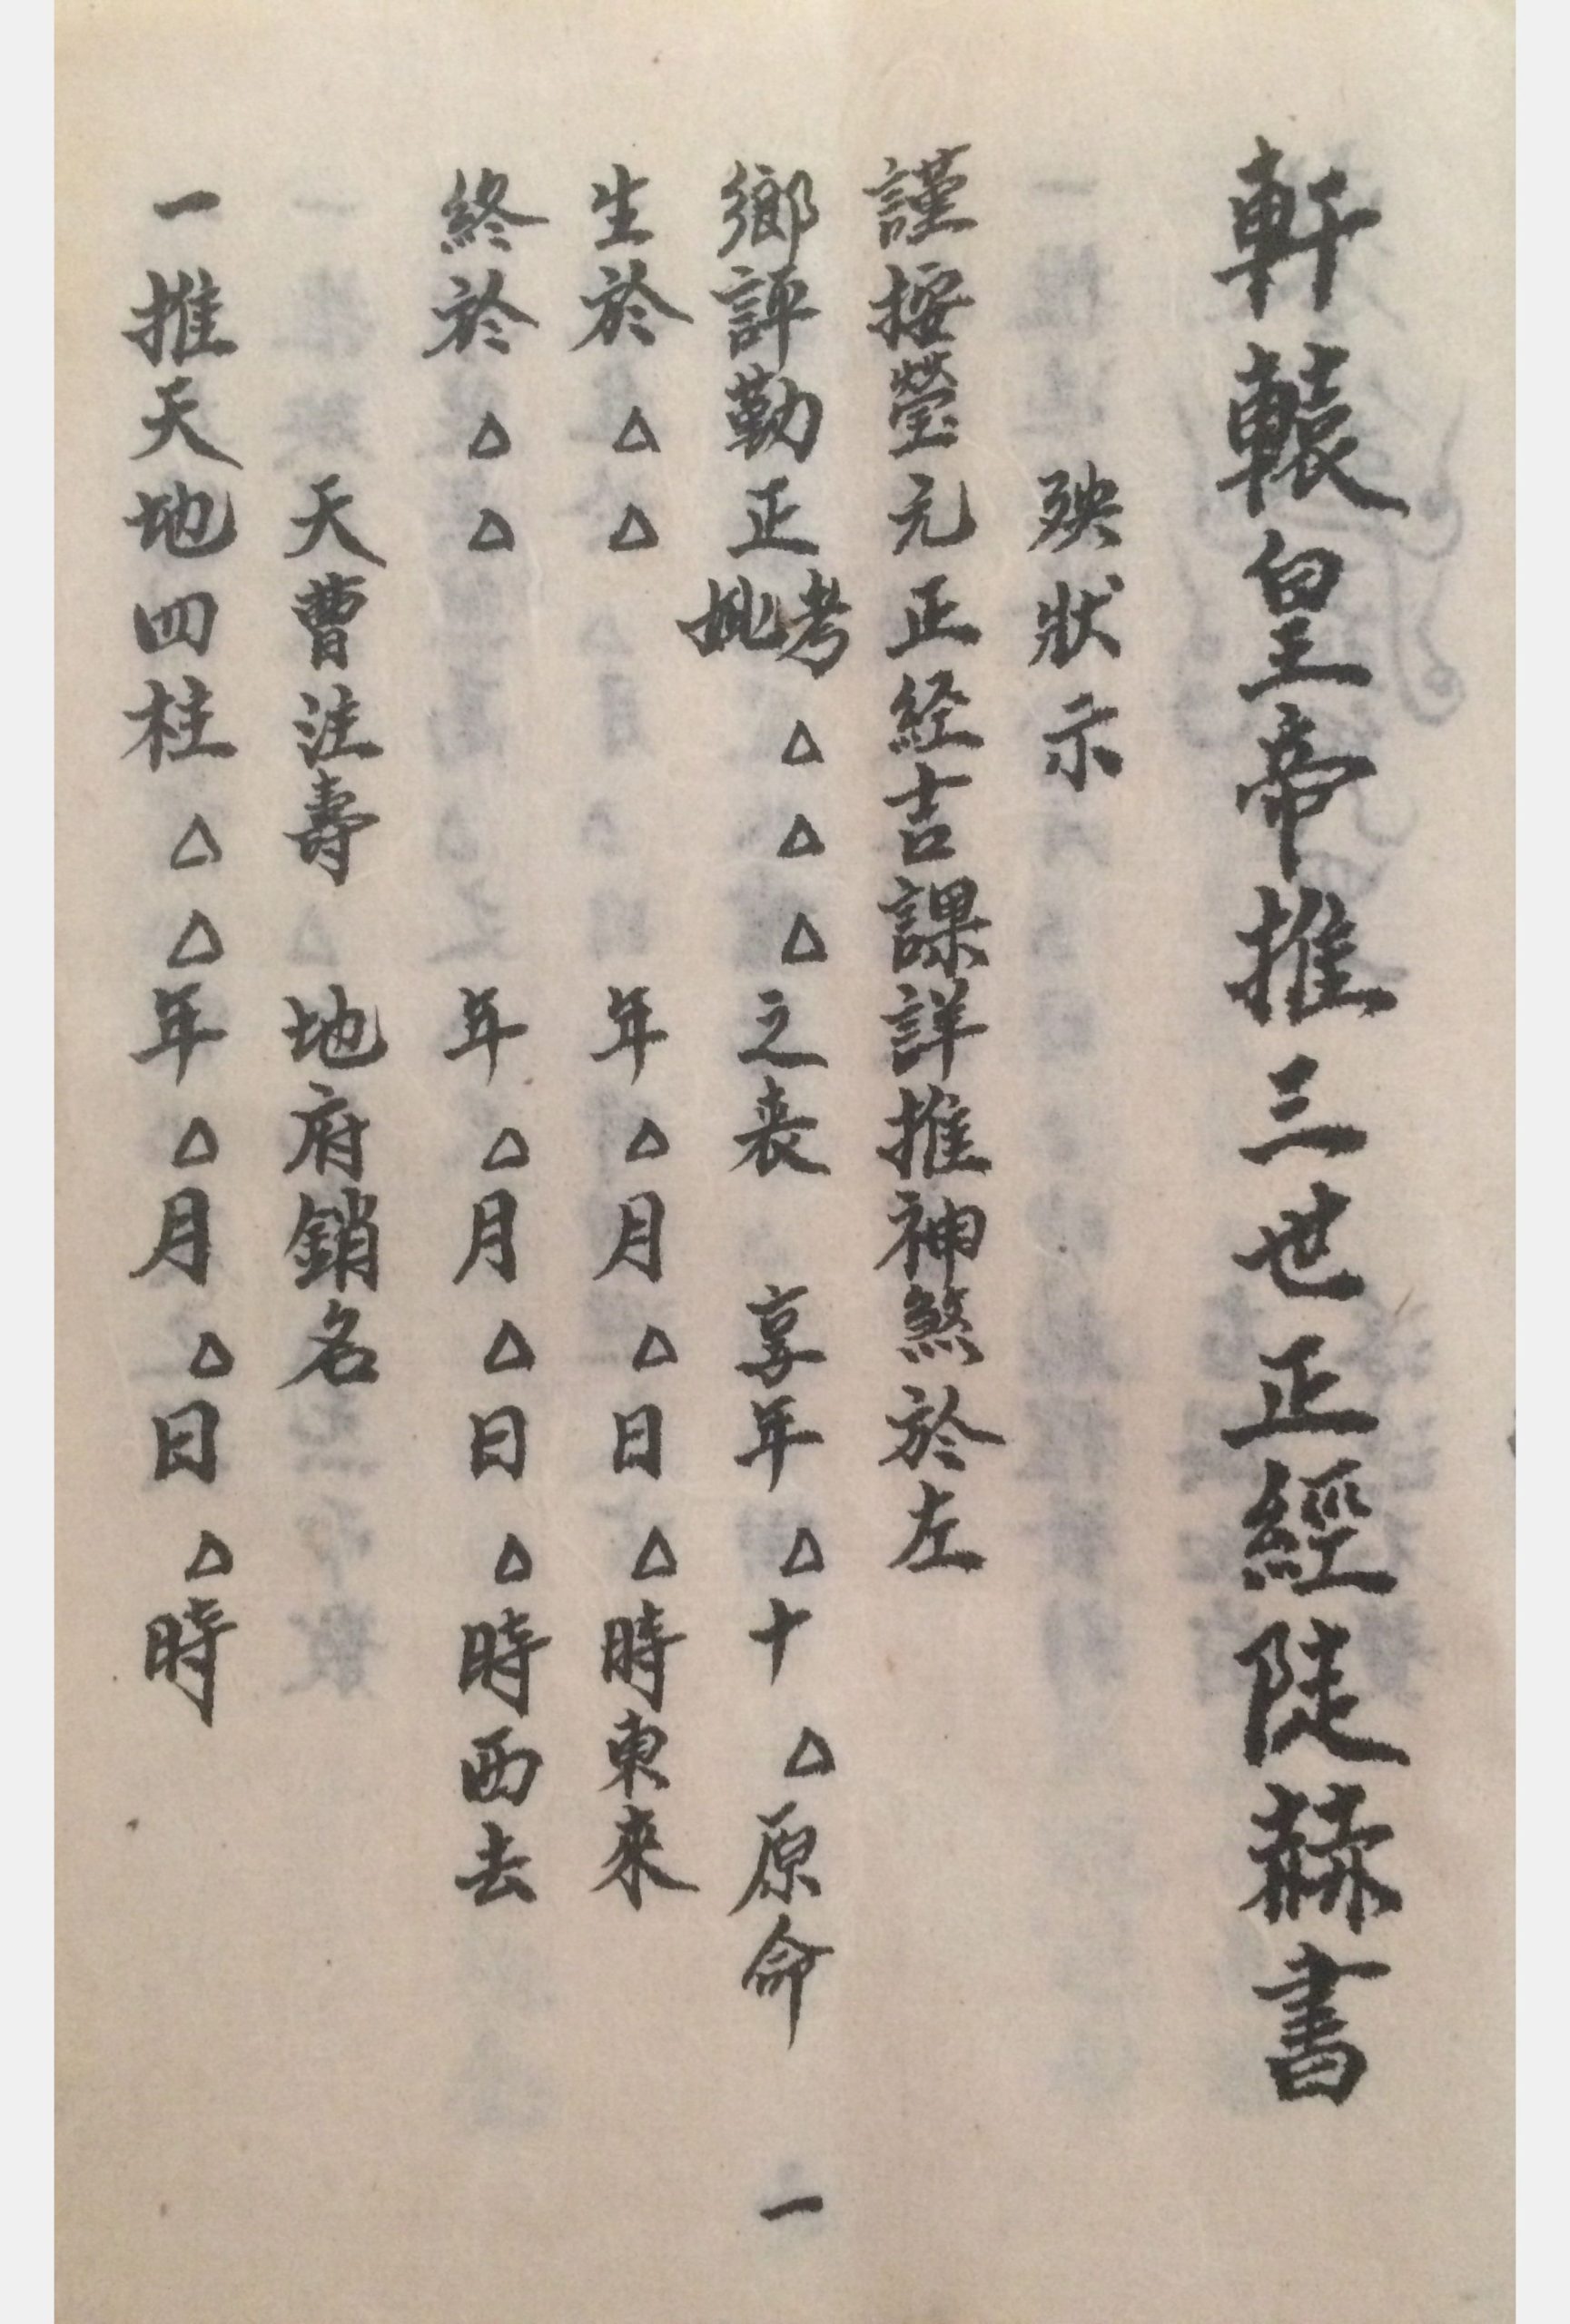 軒轅皇帝推三世正經陡赫書
殃狀示
謹按瑩元正経吉課詳推神煞於左
鄉評勒正考妣△△△之丧 享年△十△原命
生於△△年△月△日△時東來
終於△△年△月△日△時西去
天曹注壽 地府銷名
一推天地四柱△△年△月△日△時
一